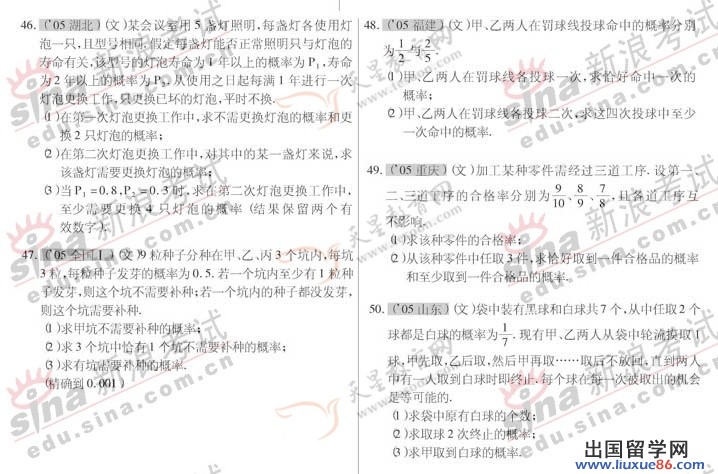 46. ('05 湖北)(文)某会议室用 5 盏灯照明,每盏灯各使用灯
泡一只,且型号相同.假定每盏灯能否正常照明只与灯泡的
寿命有关,该型号的灯泡寿命为 1 年以上的概率为 P₁,寿命
为 2 年以上的概率为 P₂.从使用之日起每满 1 年进行一次
灯泡更换工作,只更换已坏的灯泡,平时不换.
(1)在第一次灯泡更换工作中,求不需更换灯泡的概率和更
换 2 只灯泡的概率;
(2)在第二次灯泡更换工作中,对其中的某一盏灯来说,求
该盏灯需要更换灯泡的概率;
(3)当 P₁=0.8,P₂=0.3 时,求在第二次灯泡更换工作中,
至少需要更换 4 只灯泡的概率(结果保留两个有
效数字).
47. ('05 全国Ⅰ)(文)9 粒种子分种在甲、乙、丙 3 个坑内,每坑
3 粒,每粒种子发芽的概率为 0.5.若一个坑内至少有 1 粒种
子发芽,则这个坑不需要补种;若一个坑内的种子都没发芽,
则这个坑需要补种.
(1)求甲坑不需要补种的概率;
(2)求 3 个坑中恰有 1 个坑不需要补种的概率;
(3)求有坑需要补种的概率.
(精确到 0.001)
48. ('05 福建)(文)甲、乙两人在罚球线投球命中的概率分别
为 1/2 与 2/5.
(1)甲、乙两人在罚球线各投球一次,求恰好命中一次的
概率;
(2)甲、乙两人在罚球线各投球二次,求这四次投球中至少
一次命中的概率.
49. ('05 重庆)(文)加工某种零件需经过三道工序.设第一、
二、三道工序的合格率分别为 9/10、8/9、7/8,且各道工序互
不影响.
(1)求该种零件的合格率;
(2)从该种零件中任取 3 件,求恰好取到一件合格品的概率
和至少取到一件合格品的概率.
50. ('05 山东)(文)袋中装有黑球和白球共 7 个,从中任取 2 个
球都是白球的概率为 1/7.现有甲、乙两人从袋中轮流摸取 1
球,甲先取,乙后取,然后甲再取……取后不放回,直到两人
中有一人取到白球时即终止.每个球在每一次被取出的机会
是等可能的.
(1)求袋中原有白球的个数;
(2)求取球 2 次终止的概率;
(3)求甲取到白球的概率.
sina 新浪考试
edu.sina.com.cn
天星教育网
出国留学网
www.liuxue86.com